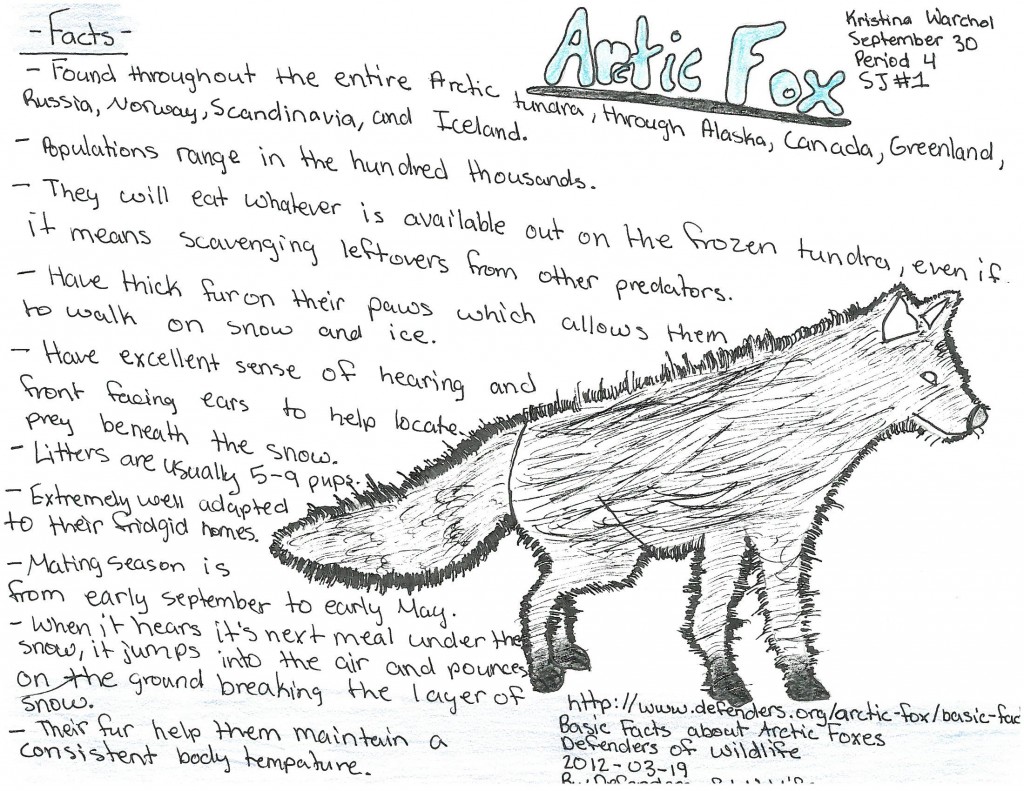 - Facts -
Arctic Fox
Kristina Warchol
September 30
Period 4
SJ#1
- Found throughout the entire Arctic tundra, through Alaska, Canada, Greenland,
Russia, Norway, Scandinavia, and Iceland.
- Populations range in the hundred thousands.
- They will eat whatever is available out on the frozen tundra, even if
it means scavenging leftovers from other predators.
- Have thick fur on their paws which allows them
to walk on snow and ice.
- Have excellent sense of hearing and
front facing ears to help locate
prey beneath the snow.
- Litters are usually 5-9 pups.
- Extremely well adapted
to their fridgid homes.
- Mating season is
from early september to early May.
- When it hears it's next meal under the
snow, it jumps into the air and pounces
on the ground breaking the layer of
snow.
- Their fur help them maintain a
consistent body tempature.
http://www.defenders.org/arctic-fox/basic-fac
Basic Facts about Arctic Foxes
Defenders of Wildlife
2012-03-19